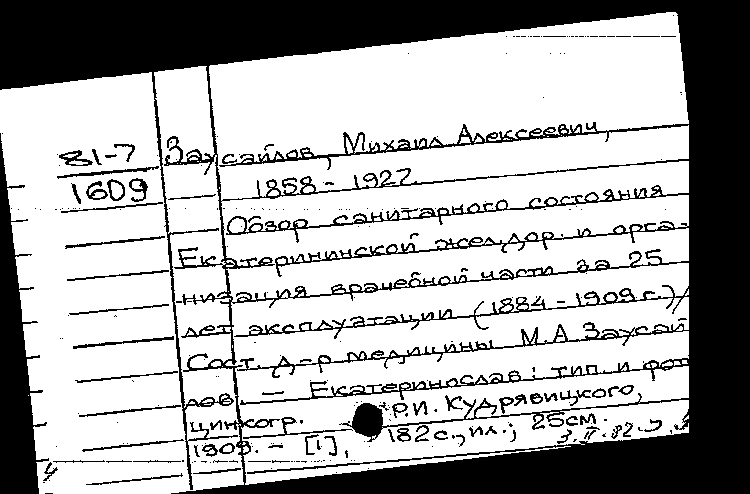 81-7
1609
Заусайлов, Михаил Алексеевич,
1858 - 1927.
Обзор санитарного состояния
Екатерининской жел.дор. и орга-
низация врачебной части за 25
лет эксплуатации (1884 - 1909 г.)/
Сост. д-р медицины М.А. Заусай
лов. — Екатеринослав: тип. и фот
цинкогр. Р.И. Кудрявицкого,
1909. - [1], 182с., ил.; 25см.
3.II.82.